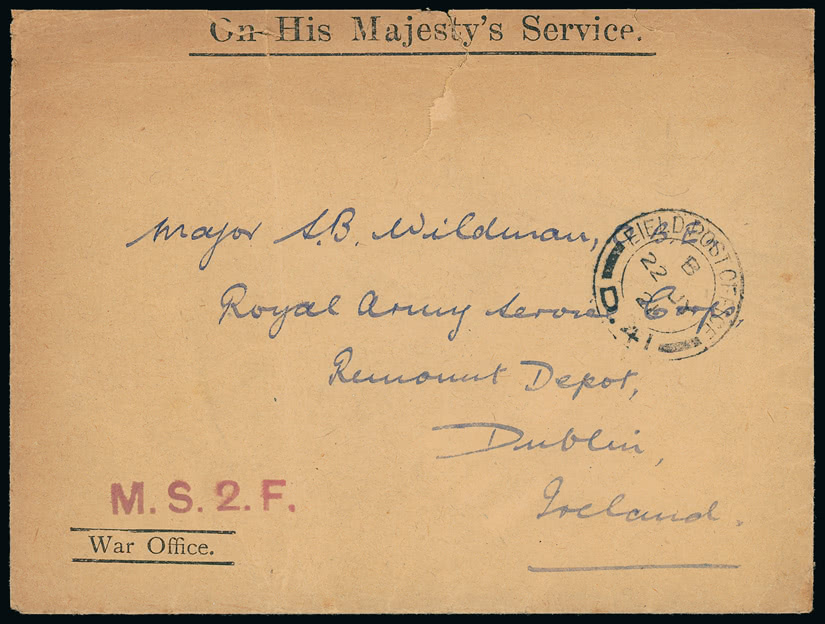 On His Majesty's Service.
Major S.B. Wildman, B E,
Royal Army Service Corps,
Remount Depot,
Dublin,
Ireland.
FIELD POST OFFICE
B
22
D.41
M.S.2.F.
War Office.